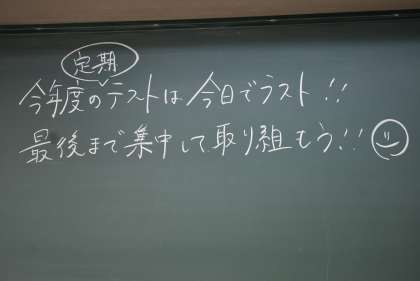 今年度の定期テストは今日でラスト!!
最後まで集中して取り組もう!!